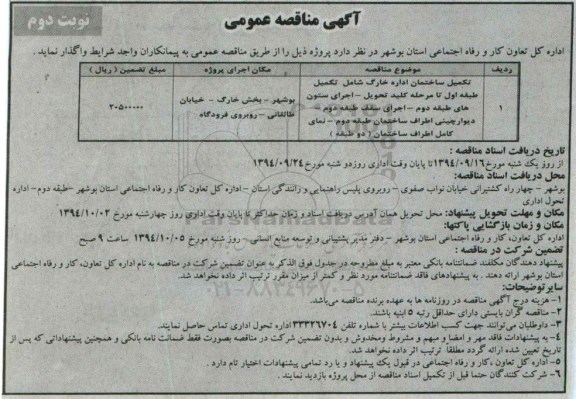 آگهی مناقصه عمومی
نوبت دوم
اداره کل تعاون کار و رفاه اجتماعی استان بوشهر در نظر دارد پروژه ذیل را از طریق مناقصه عمومی به پیمانکاران واجد شرایط واگذار نماید .
ردیف موضوع مناقصه مکان اجرای پروژه مبلغ تضمین ( ریال )
۱ تکمیل ساختمان اداره خارگ شامل تکمیل طبقه اول تا مرحله کلید تحویل - اجرای ستون های طبقه دوم - اجرای سقف طبقه دوم - دیوارچینی اطراف ساختمان طبقه دوم - نمای کامل اطراف ساختمان ( دو طبقه ) بوشهر - بخش خارگ - خیابان طالقانی - روبروی فرودگاه ۲۰۵۰۰۰۰۰
تاریخ دریافت اسناد مناقصه :
از روز یک شنبه مورخ ۱۳۹۴/۰۹/۱۶ تا پایان وقت اداری روزدو شنبه مورخ ۱۳۹۴/۰۹/۲۴
محل دریافت اسناد مناقصه:
بوشهر - چهار راه کشتیرانی خیابان نواب صفوی - روبروی پلیس راهنمایی و رانندگی استان - اداره کل تعاون کار و رفاه اجتماعی استان بوشهر - طبقه دوم - اداره تحول اداری
مکان و مهلت تحویل پیشنهاد: محل تحویل همان آدرس دریافت اسناد و زمان حداکثر تا پایان وقت اداری روز چهارشنبه مورخ ۱۳۹۴/۱۰/۰۲
مکان و زمان بازگشایی پاکتها:
اداره کل تعاون، کار و رفاه اجتماعی استان بوشهر - دفتر مدیر پشتیبانی و توسعه منابع انسانی - روز شنبه مورخ ۱۳۹۴/۱۰/۰۵ ساعت ۹ صبح
تضمین شرکت در مناقصه :
پیشنهاد دهندگان مکلفند ضمانتنامه بانکی معتبر به مبلغ مطروحه در جدول فوق الذکر به عنوان تضمین شرکت در مناقصه به نام اداره کل تعاون، کار و رفاه اجتماعی
استان بوشهر ارائه دهند . به پیشنهادهای فاقد ضمانتنامه مورد نظر و کمتر از میزان مقرر ترتیب اثر داده نخواهد شد.
سایر توضیحات:
۱- هزینه درج آگهی مناقصه در روزنامه ها به عهده برنده مناقصه می‌باشد.
۲- مناقصه گران بایستی دارای حداقل رتبه ۵ ابنیه باشند.
۳- داوطلبان می‌توانند جهت کسب اطلاعات بیشتر با شماره تلفن ۳۳۳۲۶۷۰۴ اداره تحول اداری تماس حاصل نمایند.
۴- به پیشنهادات فاقد مهر و امضا و مبهم و مشروط و مخدوش و بدون تضمین شرکت در مناقصه بصورت فقط ضمانت نامه بانکی و همچنین پیشنهاداتی که پس از
تاریخ تعیین شده ارائه گردد مطلقاً ترتیب اثر داده نخواهد شد.
۵- اداره کل تعاون ،کار و رفاه اجتماعی در قبول یک پیشنهاد و یا رد تمامی پیشنهادات اختیار تام دارد .
۶- شرکت کنندگان حتما قبل از تکمیل اسناد مناقصه از محل پروژه بازدید نمایند .
ParsNamadData
۰۲۱-۸۸۳۴۹۶۷۰-۵